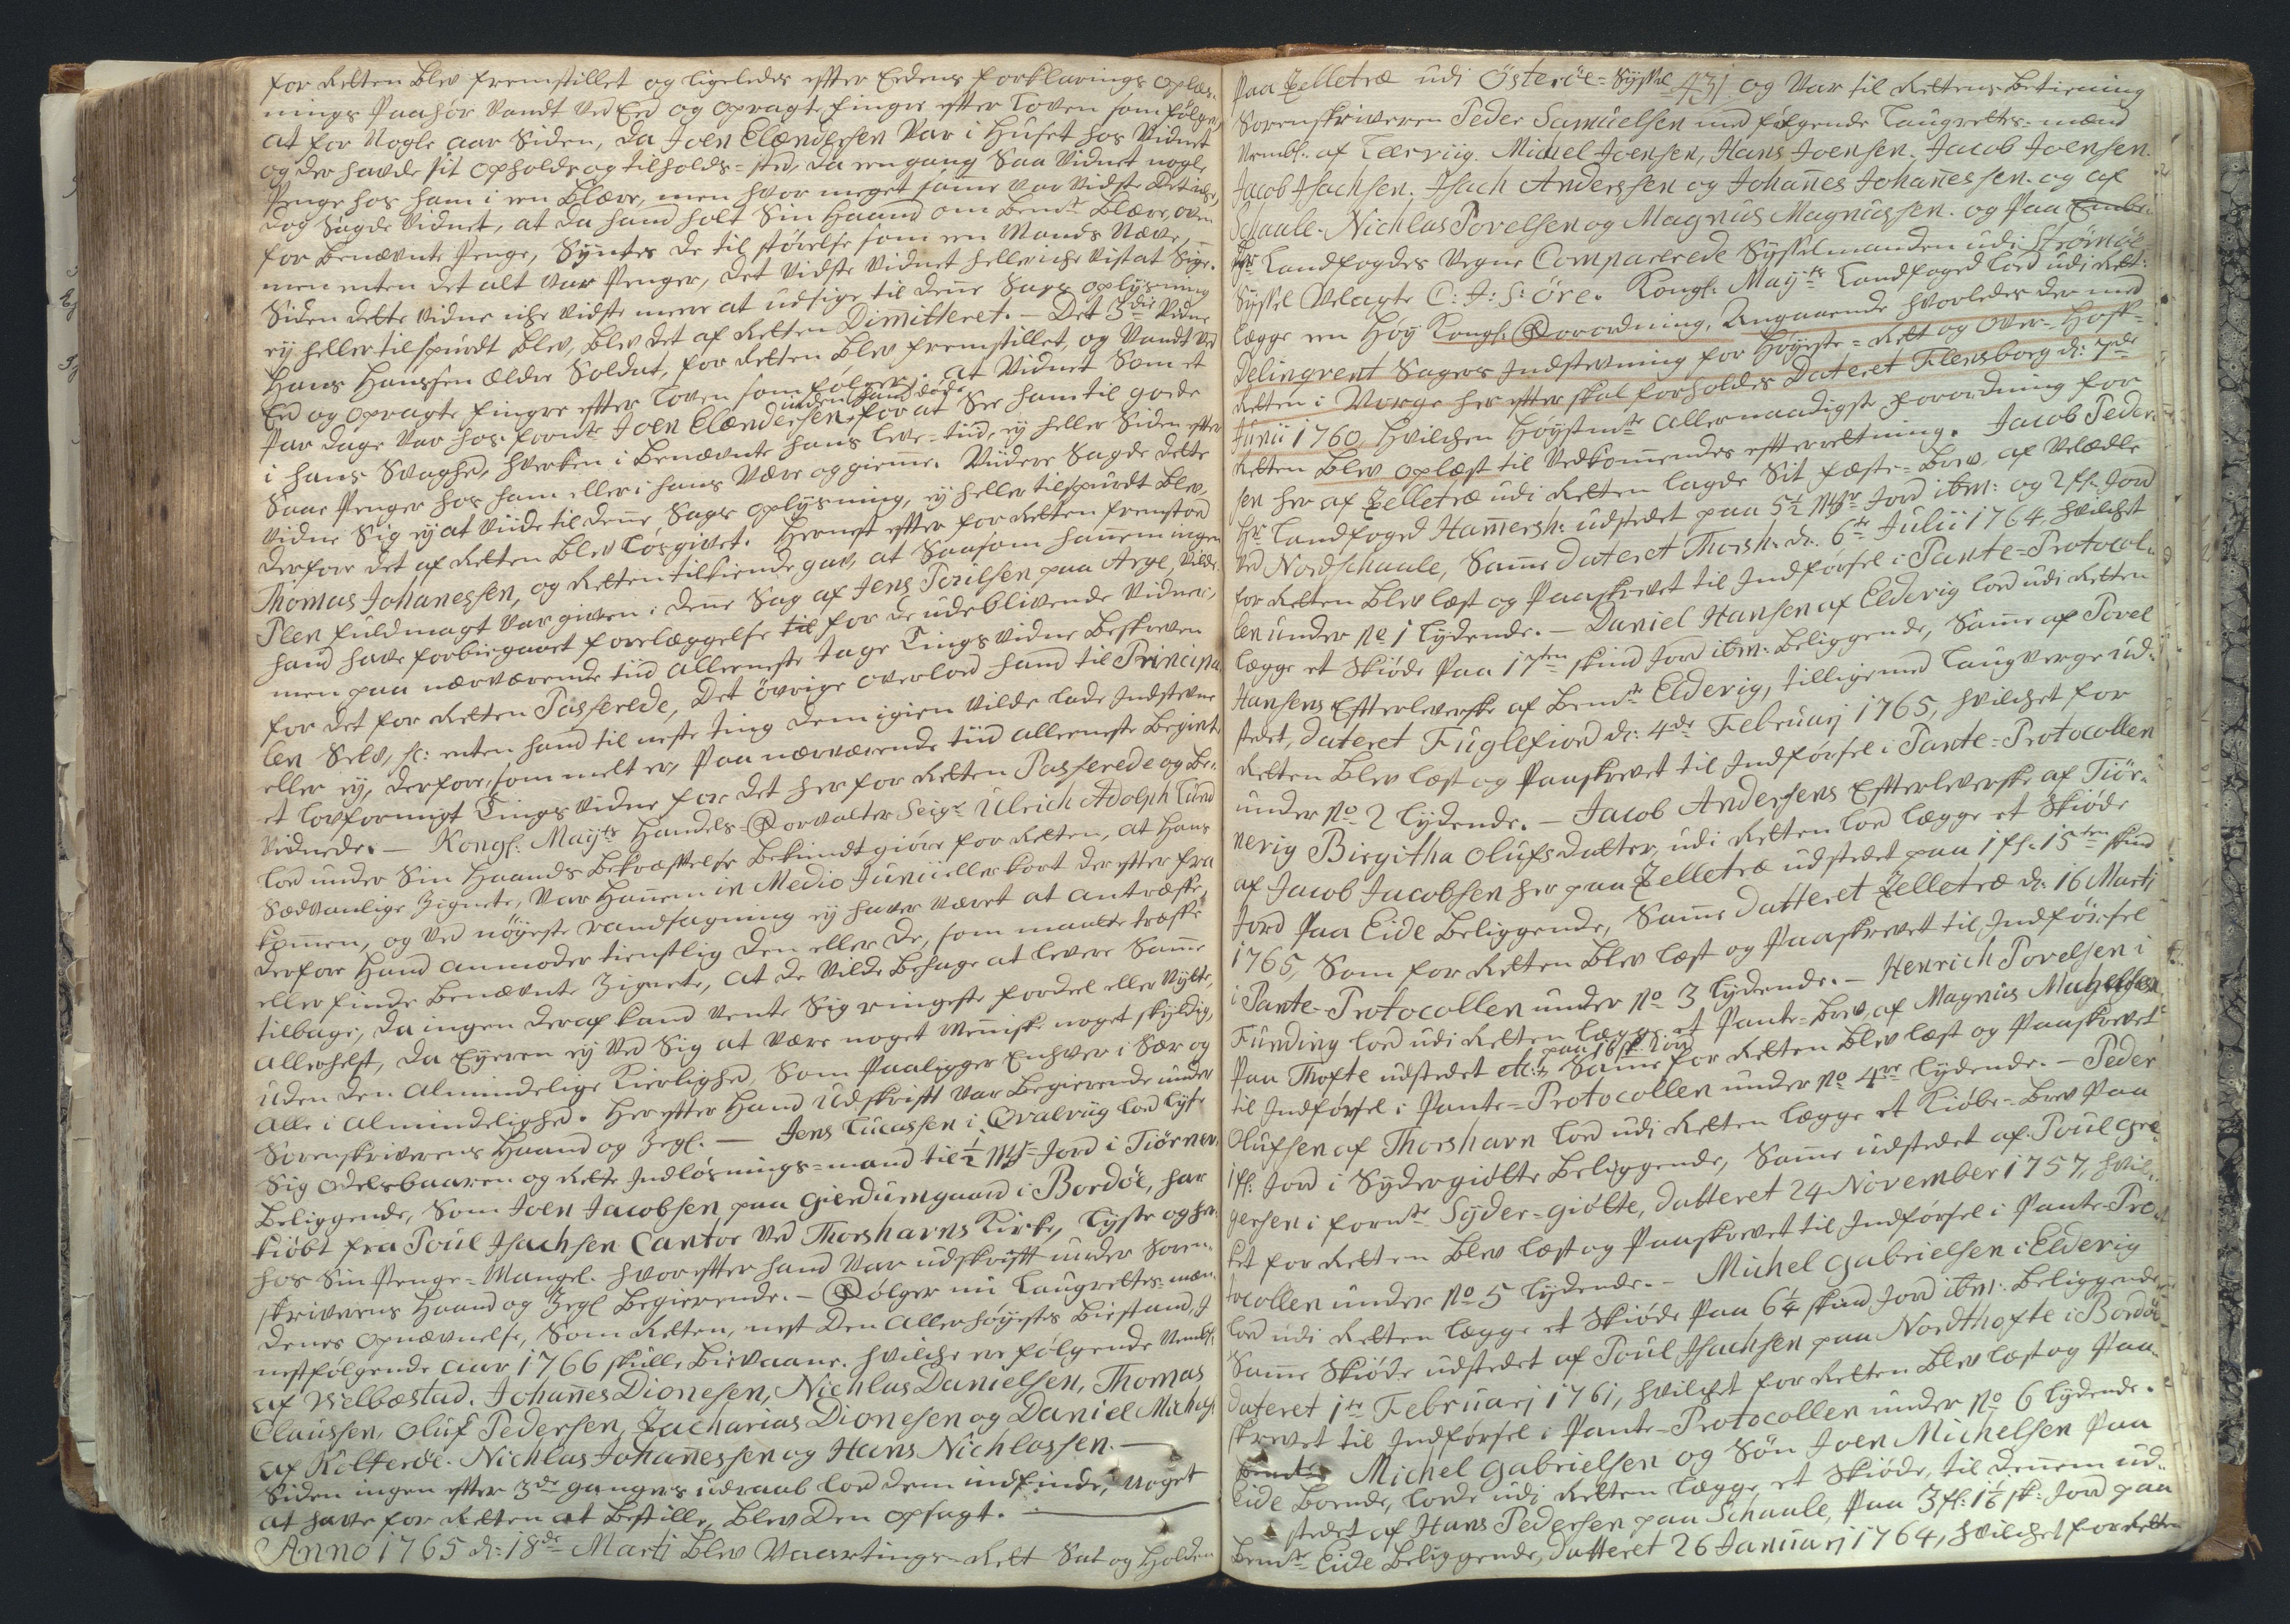 for Retten blev fremstillet og ligeledes effter Eedens forklarings oplæs-
nings Paahør Vandt ved Eed og opragte finger effter Loven som følger,
at for Nogle aar Siden, da Joen Elændersen Var i Huset hos Vidnet
og der havde sit opholds og tilholds-sted, da engang Saa Vidnet nogle
Penge hos ham i en Blære, men hvor meget samme var vidste det icke,
dog sagde Vidnet, at da hand holt Sin Haand om bemte Blære, oven
for benævnte Penge, Syntes de til størelse som en Mands Næve,
men enten det alt var Penger, det vidste Vidnet heller icke vist at Sige.
Siden dette Vidne icke vidste mere at udsige til denne Sags oplysning
ey heller tilspurdt blev, blev det af Retten Dimitteret. – Det 3die Vidne
Hans Hanssen ældre Soldat, for Retten blev fremstillet, og Vandt ved
Eed og opragte finger effter Loven som følger: at Vidnet Som et
Par dage var hos fornte Joen Elændersen inden hand døde for at See ham til gode
i hans Svaghed, hverken i benævnte hans leve-tiid, ey heller Siden effter
Saae Penger hos ham eller i hans Være og giemme. Viidere Sagde dette
Vidne Sig ey at Viide til denne Sags oplysning, ey heller tilspurdt blev,
derfor det af Retten blev Løsgivet. Hernest effter for Retten fremstod
Thomas Johanessen, og Retten tilkiende gav, at Saasom hannem ingen
Plen fuldmagt var given i denne Sag af Jens Poulsen paa Arge, vilde
hand have forbiegaaet forelæggelse til for de udeblivende Vidner,
men paa nærværende tiid allerneste tage Tings Vidne beskreven
for det for Retten Passerede, det øvrige overlod hand til Principa-
len Selv, sc: enten hand til neste ting dem igien vilde lade Indstevne
eller ey, derfore, som melt er, Paa nærværende tiid allerneste begiert
et lovformigt Tings Vidne for det her for Retten Passerede og be-
vidnede. – Kongl: Mayts Handels-Forvalter Seigr Ulrich Adolph Lund
lod under Sin Haands bekræfftelse bekiendtgiøre for Retten, at hans
Sædvanlige Zignete, var hannem in Medio Junii eller kort der effter fra
kommen, og ved nøyeste randsagning ey haver været at antræffe,
derfore hand anmoder tienstlig den eller de, som maatte træffe
eller finde benævnte Zignete, at de vilde behage at levere Samme
tilbage, da ingen deraf kand vente Sig ringeste fordeel eller Nytte,
allerhelst, da Eyeren ey ved Sig at være noget Menniske noget skyldig,
uden den almindelige Kierlighed, Som Paaligger Enhver i Sær og
alle i Almindelighed. Her effter hand Udskrifft var begierende under
Sorenskriverens Haand og Zegl. – Jens Lucassen i Qvalviig lod lyse
Sig odelsbaaren og Rette Indløsnings-mand til ½ Mk Jord i Tiørnev.
beliggende, Som Joen Jacobsen paa Gierdumgaard i Bordøe, har
kiøbt fra Poul Isachsen Cantor ved Thorshavns Kirke, lyste og her-
hos Sin Penge-Mangel. hvor effter hand var udskrifft under Soren-
skriverens Haand og Zegl begierende. – Følger nu Laugrettes-mæn-
denes opnævnelse, Som Retten, nest den allerhøyestes biestand, i
nestfølgende aar 1766 skulle bievaane. hvilke ere følgende Nembl:
af Welbæstad. Johannes Dionesen, Nichlas Danielsen, Thomas
Claussen, Oluf Pedersen, Zacharias Dionesen og Daniel Michels:
af Kolterøe. Nichlas Johannessen og Hans Nichlassen. –
Siden ingen effter 3de ganges udraab lod dem indfinde, noget
at have for Retten at bestille, blev den opsagt. –
Anno 1765 d: 18de Marti blev Vaartings-Rett Sat og Holden
Paa Zelletræ udi Østerøe-Syssel 431 og Var til Rettens betiening
Sorenskriveren Peder Samuelsen med følgende Laugrettes-mænd
Nembl: af Leerviig. Michel Joensen, Hans Joensen, Jacob Joensen.
Jacob Isachsen, Isach Anderssen og Johannes Johannessen. og af
Schaale. Nichlas Povelsen og Magnus Magnussen. og Paa
Hr Landfogdes Vegne Comparerede Sysselmanden udi Strømøe
Syssel Velagte C: J: S: øre. Kongl: Mayts Landfoged lod udi Rett:
lægge en Høy Kongl: Forordning, Angaaende hvorledes der med
Delinqvent Sagers Indstevning for Høyeste-Rett og Over-Hoff-
Retten i Norge her effter skal forholdes Dateret Flensborg d: 7de
Junii 1760, Hvilchen Høystmte allernaadigste forordning for
Retten blev oplæst til Vedkommendes effterretning. Jacob Peder-
sen her af Zelletræ udi Retten lagde Sit fæste-brev, af Velædle
Hr Landfoged Hamersh: udstedet paa 5½ Mkr Jord ibm: og 2 fl: Jord
ved Nordschaale, Samme dateret Thorsh: d: 6te Julii 1764, hvilchet
for Retten blev læst og Paaskrevet til Indførsel i Pante-Protocol-
len under No 1 lydende. – Daniel Hansen af Elderig lod udi Retten
lægge et Skiøde Paa 17ten skind Jord ibm: beliggende, Samme af Povel
Hansens Effterleverske af bemte Elderig, tilligemed Laugverge ud-
stedet, dateret Fuglefiord d: 4de Februarj 1765, hvilchet for
Retten blev læst og Paaskrevet til Indførsel i Pante-Protocollen
under No 2 lydende. – Jacob Andersens Effterleverske af Tiør-
nerig Birgitha Olufsdatter, udi Retten lod lægge et Skiøde
af Jacob Jacobsen her paa Zelletræ udstedet paa 1 fl: 15ten skind
Jord Paa Eide beliggende, Samme datteret Zelletræ d: 16 Marti
1765, Som for Retten blev læst og Paaskrevet til Indførsel
i Pante-Protocollen under No 3 lydende. – Henrich Povelsen i
Funding lod udi Retten lægge et Pante-brev, af Magnus
Paa Thofte udstedet etc: paa 16 sk: Jord Samme for Retten blev læst og Paaskrevet
til Indførsel i Pante-Protocollen under No 4re lydende. – Peder
Olufsen af Thorshavn lod udi Retten lægge et Kiøbe-brev Paa
1 fl: Jord i Sydergiøtte beliggende, Samme udstedet af Poul Gre-
gersen i fornte Syder-giøtte, datteret 24 November 1757, hvil-
ket for Retten blev læst og Paaskrevet til Indførsel i Pante-Pro-
tocollen under No 5 lydende. – Michel Gabrielsen i Elderig
lod udi Retten lægge et Skiøde Paa 6¼ skind Jord ibm: beliggende
Samme Skiøde udstedet af Poul Isachsen paa Nordthofte i Bordøe
dateret 1te Februarj 1761, hvilchet for Retten blev læst og Paa-
skrevet til Indførsel i Pante-Protocollen under No 6 lydende.
Michel Gabrielsen og Søn Joen Michelsen Paa
Eide boende, lode udi Retten lægge et Skiøde, til dennem ud-
stedet af Hans Pedersen paa Schaale, Paa 3 fl: 1⅙ sk: Jord paa
bemte Eide beliggende, datteret 26 Januarj 1764, hvilchet for Retten